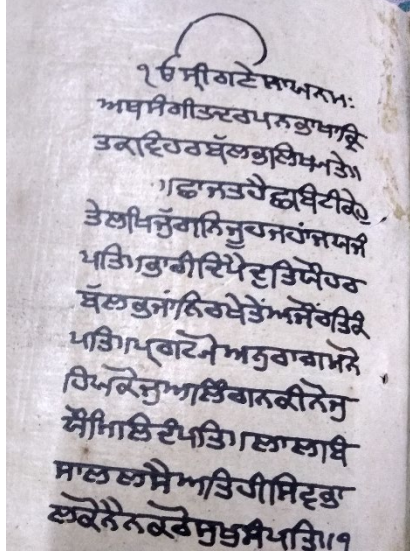 ੧ਓ ਸ੍ਰੀਗਣੇਸਾਯਨਮਃ
ਅਥਸੰਗੀਤਦਰਪਨਭਾਖਾਕ੍ਰਿ
ਤਕਵਿਹਰਬੱਲਭਲਿਖਯਤੇ॥
॥ਛਾਜਤਹੈਛਬਿਟੀਕੇਹੂ
ਤੇਲਖਿਜੁੱਗਨਿਜੂਹਜਹਾਂਜਯਜੰ
ਪਤਿ॥ਭਾਰੀਦਿਪੈਦੁਤਿਯੌਹਰ
ਬੱਲਭਜਾਂਨਿਰਖੇਤੇਂਅਜੌਂਰਤਿਕੰ
ਪਤਿ॥ਪ੍ਰਗਟੋਜੋਅਨੁਰਾਗਮਨੋ
ਹਿਯਕੋਜੁਆਲਿੰਗਨਕੀਨੋਜੁ
ਯੌਮਿਲਿਦੰਪਤਿ॥ਲਾਲਬਿ
ਸਾਲਲਸੈਅਤਿਹੀਸਿਵਭਾ
ਲਕੋਨੈਨਕਰੋਸੁਖਸੰਪਤਿ॥੧